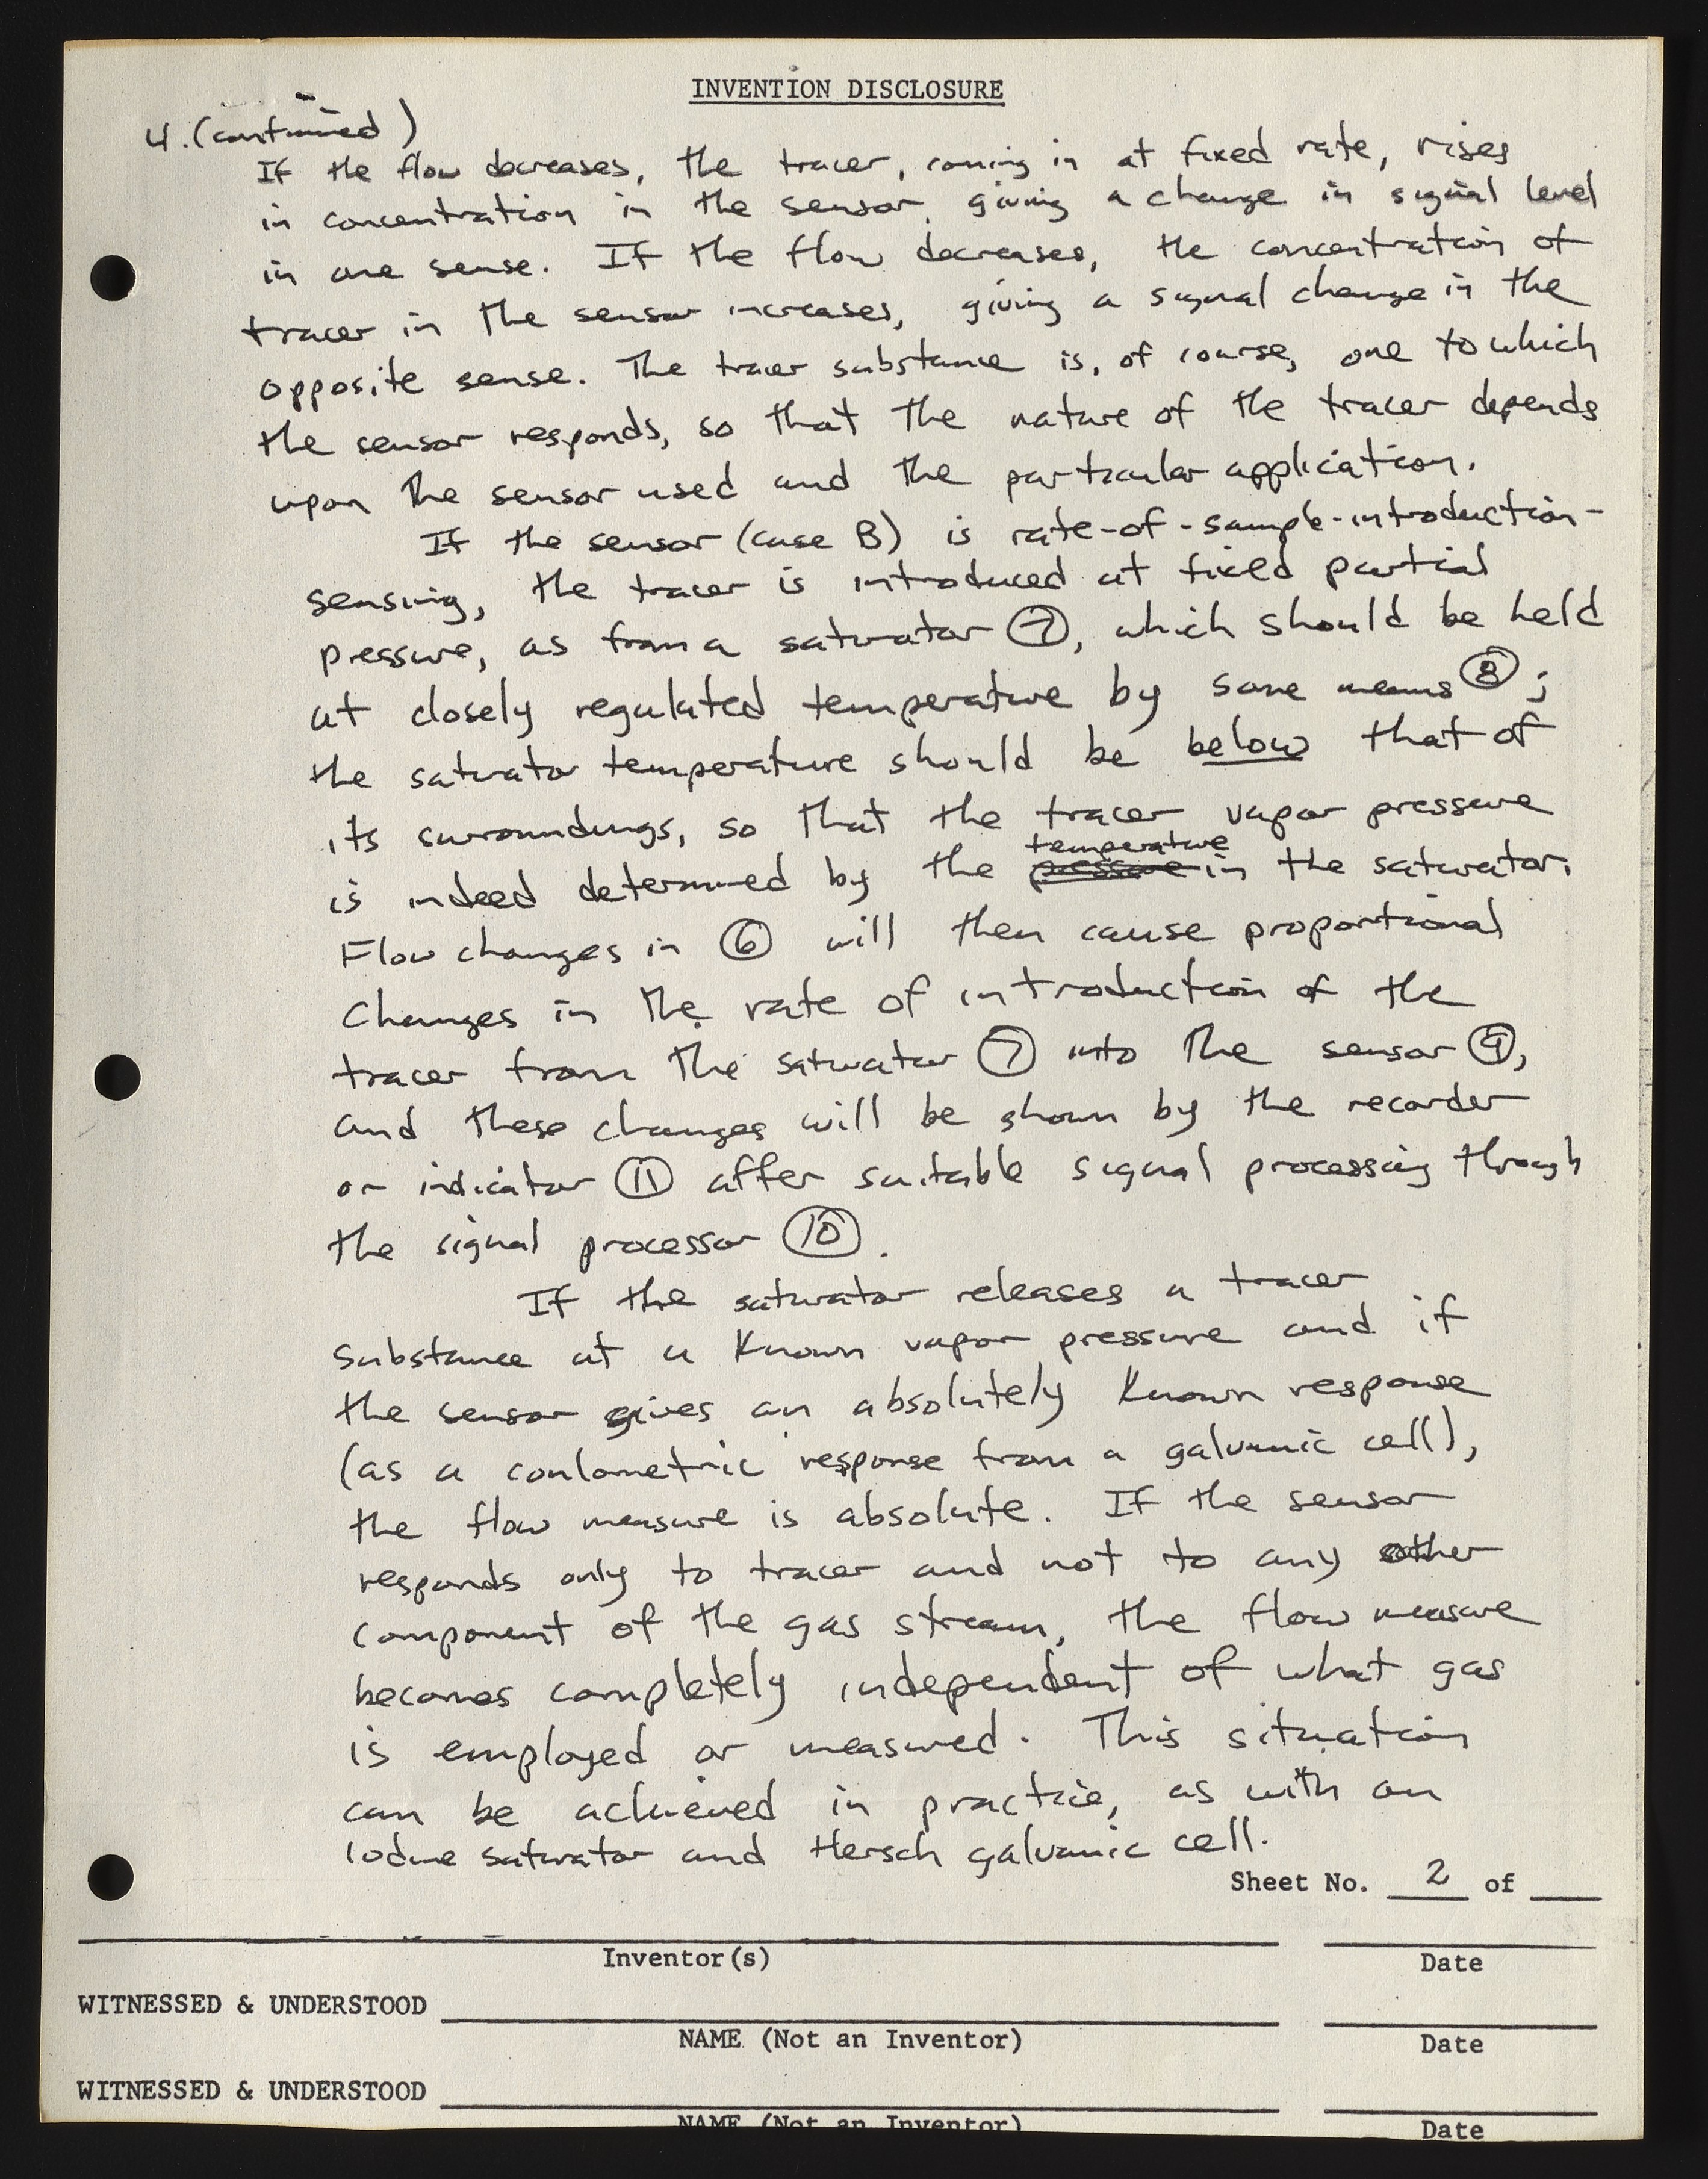 INVENTION DISCLOSURE
4. (continued)
If the flow decreases, the tracer, coming in at fixed rate, rises
in concentration in the sensor, giving a change in signal level
in one sense. If the flow decreases, the concentration of
tracer in the sensor increases, giving a signal change in the
opposite sense. The tracer substance is, of course, one to which
the sensor responds, so that the nature of the tracer depends
upon the sensor used and the particular application.
If the sensor (case B) is rate-of-sample-introduction-
sensing, the tracer is introduced at fixed partial
pressure, as from a saturator ⑦, which should be held
at closely regulated temperature by some means ⑧;
the saturator temperature should be below that of
its surroundings, so that the tracer vapor pressure
temperature
is indeed determined by the pressure in the saturator.
Flow changes in ⑥ will then cause proportional
changes in the rate of introduction of the
tracer from the saturator ⑦ into the sensor ⑨,
and these changes will be shown by the recorder
or indicator ⑪ after suitable signal processing through
the signal processor ⑩.
If the saturator releases a tracer
substance at a known vapor pressure and if
the sensor gives an absolutely known response
(as a coulometric response from a galvanic cell),
the flow measure is absolute. If the sensor
responds only to tracer and not to any other
component of the gas stream, the flow measure
becomes completely independent of what gas
is employed or measured. This situation
can be achieved in practice, as with an
Iodine saturator and Hersch galvanic cell.
Sheet No. 2 of
Inventor(s) Date
WITNESSED & UNDERSTOOD
NAME (Not an Inventor) Date
WITNESSED & UNDERSTOOD
NAME (Not an Inventor) Date